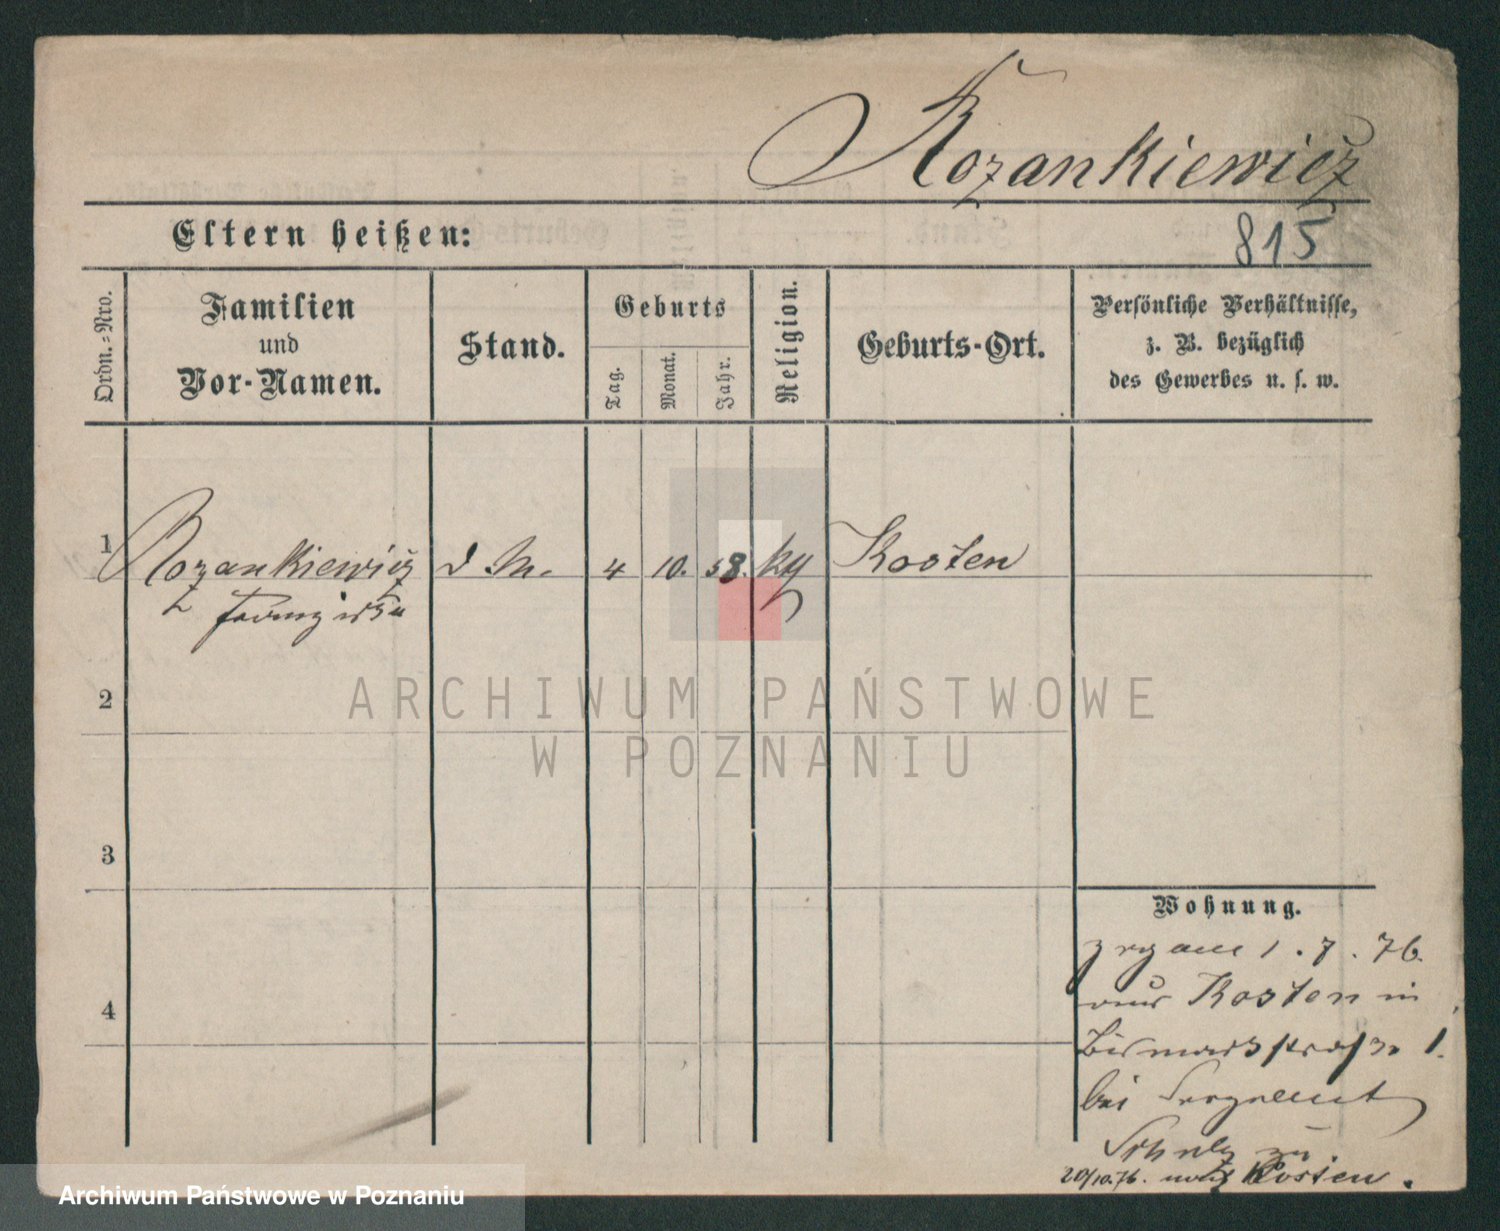 Rozankiewicz
Eltern heißen:
815
Ordn.-Nro.
Familien
und
Vor-Namen.
Stand.
Geburts
Tag.
Monat.
Jahr.
Religion.
Geburts-Ort.
Persönliche Verhältnisse,
z. B. bezüglich
des Gewerbes u. s. w.
1 Rozankiewicz d. M. 4 10. 58. kg Kosten
Franziska
ARCHIWUM PAŃSTWOWE
W POZNANIU
2
3
4
Wohnung.
zrg am 1. 7. 76.
aus Kosten in
Bismarkstraße 1.
bei Sergeant
Schulz zu
20/10.76. nach Kosten.
Archiwum Państwowe w Poznaniu